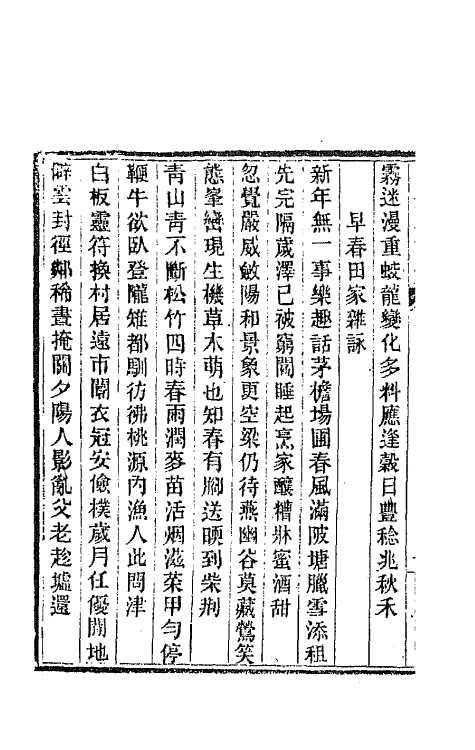 霧迷漫重蛟龍變化多料應逢穀日豐稔兆秋禾
早春田家雜詠
新年無一事樂趣話茅檐場圃春風滿陂塘臘雪添租
先完隔歲澤已被窮閻睡起烹家釀糟牀蜜酒甜
忽覺嚴威斂陽和景象更空梁仍待燕幽谷莫藏鶯笑
態峯巒現生機草木萌也知春有腳送暖到柴荆
青山青不斷松竹四時春雨潤麥苗活烟滋菜甲勻停
鞭牛欲臥登隴雉都馴彷彿桃源內漁人此問津
白板靈符換村居遠市闤衣冠安儉樸歲月任優閒地
僻雲封徑鄰稀晝掩關夕陽人影亂父老趁墟還